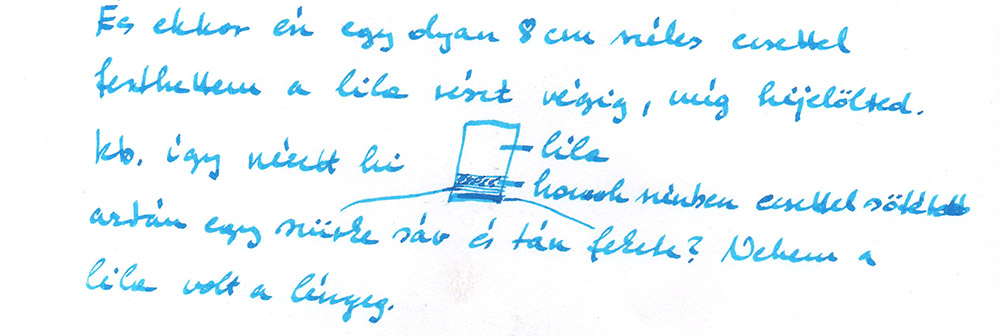 És ekkor én egy olyan 8 cm széles ecsettel
festhettem a lila részt végig, míg kijelölted.
kb. így nézett ki
lila
homok színben ecsettel sötétebb
aztán egy szürke sáv és tán fekete? Nekem a
lila volt a lényeg.